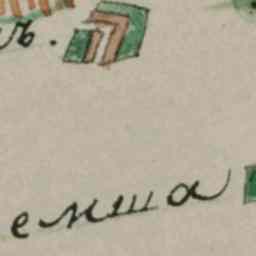 ъ. П
емша